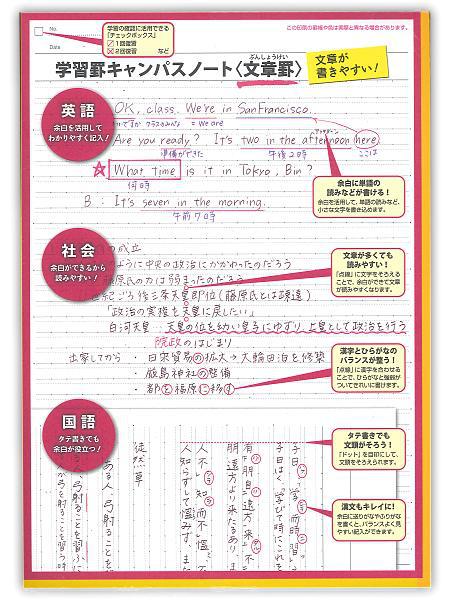 No.
Date
学習の確認に活用できる
『チェックボックス』
1回復習
2回復習 など
この印刷の罫幅や色は実際と異なる場合があります。
学習罫キャンパスノート〈文章罫〉
ぶんしょうけい
文章が
書きやすい!
英語
余白を活用して
わかりやすく記入!
OK, class. We're in San Francisco.
= We are
Are you ready? It's two in the afternoon here.
準備ができた
午後2時
ここは
What time is it in Tokyo, Bin?
何時
B : It's seven in the morning.
午前7時
余白に単語の
読みなどが書ける!
余白を活用して、単語の読みなど、
小さな文字を書き込めます。
社会
余白ができるから
読みやすい!
の成立
ように中央の政治にかかわったのだろう
原氏の力は弱まったのだろう
世紀ごろ後三条天皇即位(藤原氏とは疎遠)
「政治の実権を天皇に戻したい」
白河天皇 天皇の位を幼い皇子にゆずり、上皇として政治を行う
院政のはじまり
出家してから ・日宋貿易の拡大→大輪田泊を修築
・厳島神社の整備
・都を福原に移す
文章が多くても
読みやすい!
「点線」に文字をそろえる
ことで、余白ができて文章
が読みやすくなります。
漢字とひらがなの
バランスが整う!
「点線」に漢字を合わせる
ことで、ひらがなと強弱が
ついてきれいに書けます。
国語
タテ書きでも
余白が役立つ!
タテ書きでも
文頭がそろう!
「ドット」を目印にして、
文頭をそろえられます。
漢文もキレイに!
余白に送りがなやふりがな
を書くと、バランスよく見
やすい紀入ができます。
子曰、「学而時習
子曰はく、「学びて時にこれを
有朋自遠方来、不
朋遠方より来たるあり、ま
人不知而不慍、不
人知らずして慍みず、また
徒然草
ある人、弓射ることを習ふに
人が弓を射ることを習う時